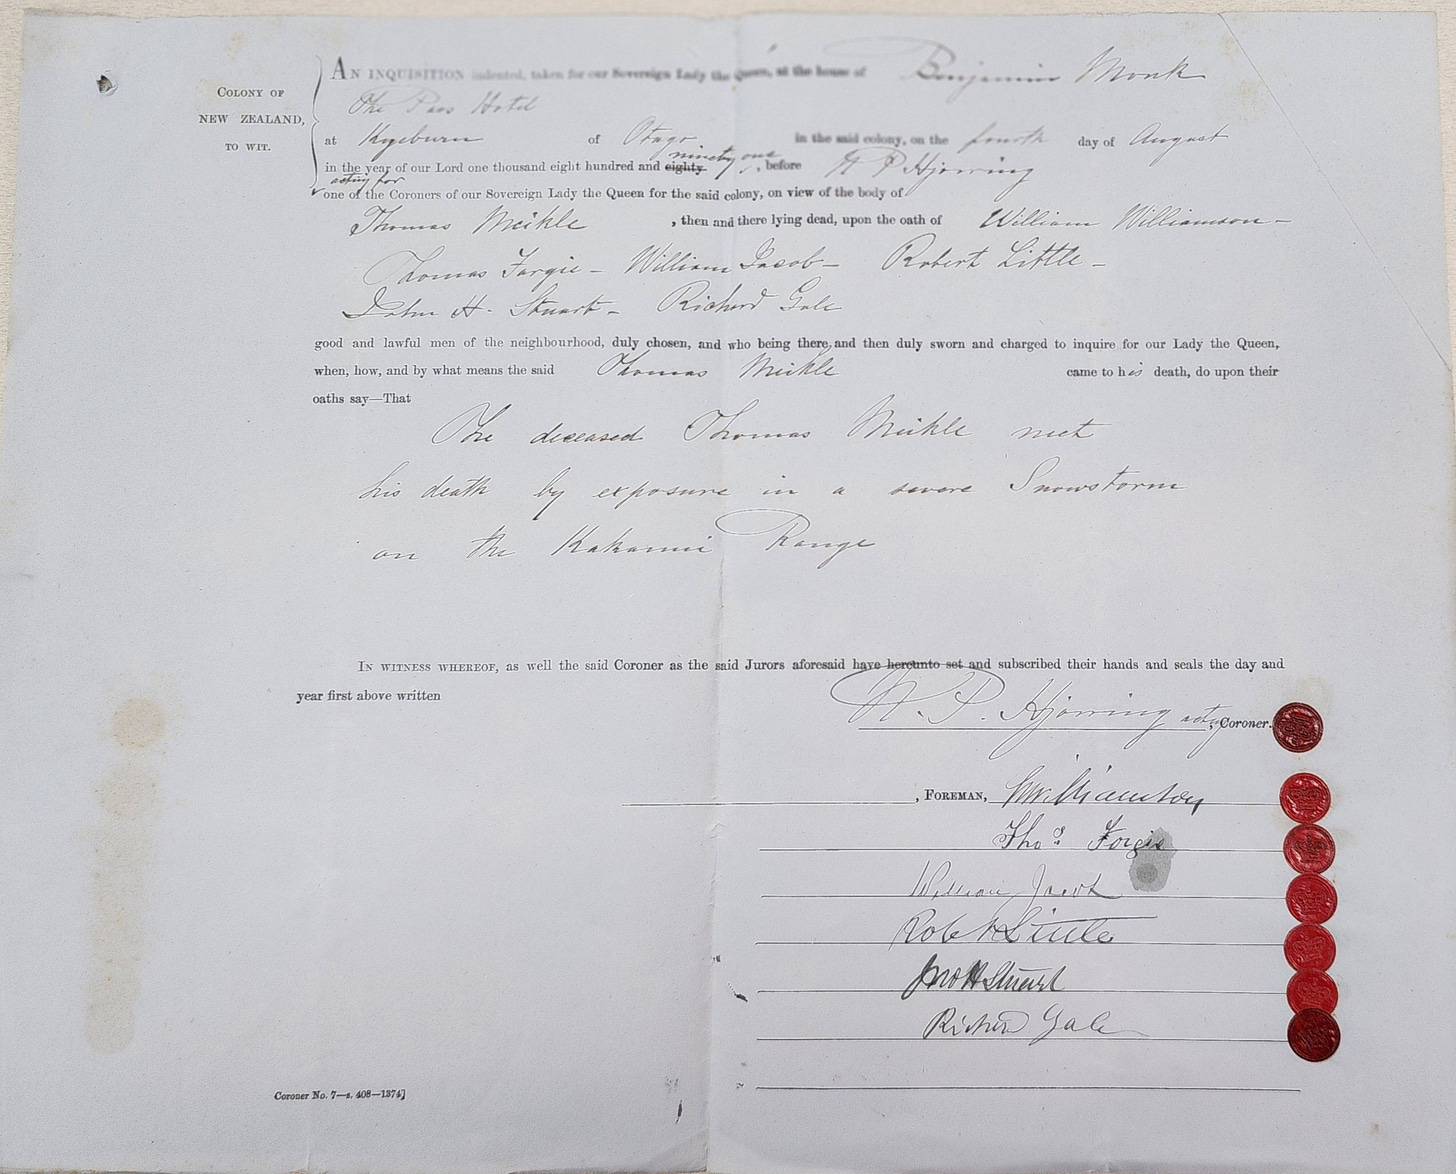 COLONY OF
NEW ZEALAND,
TO WIT.
AN INQUISITION indented, taken for our Sovereign Lady the Queen, at the house of Benjamin Monk
The Pass Hotel
at Kyeburn of Otago in the said colony, on the fourth day of August
ninety one
in the year of our Lord one thousand eight hundred and eighty, before N P Hjorring
acting for
one of the Coroners of our Sovereign Lady the Queen for the said colony, on view of the body of
Thomas Meikle, then and there lying dead, upon the oath of William Williamson -
Thomas Fargie - William Jacob - Robert Little -
John H. Stuart - Richard Gale
good and lawful men of the neighbourhood, duly chosen, and who being there and then duly sworn and charged to inquire for our Lady the Queen,
when, how, and by what means the said Thomas Meikle came to his death, do upon their
oaths say—That
The deceased Thomas Meikle met
his death by exposure in a severe Snowstorm
on the Kakanui Range
IN WITNESS WHEREOF, as well the said Coroner as the said Jurors aforesaid have hereunto set and subscribed their hands and seals the day and
year first above written
N. P. Hjorring actg, Coroner.
, FOREMAN, WWilliamson
Thos. Forgie
William Jacob
Robt Little
Jno H Stuart
Richard Gale
Coroner No. 7—s. 408—1374]